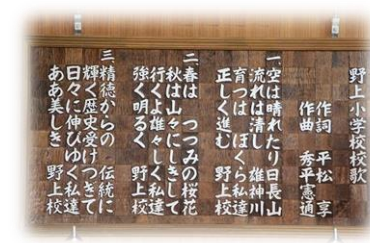 野上小学校校歌
作詞 平松 享
作曲 秀平憲通
一 空は晴れたり日長山
流れは清し 雄神川
育つは ぼくら私達
正しく進む 野上校
二 春は つつみの桜花
秋は山々にしきして
行くよ雄々しく私達
強く明るく 野上校
三 精徳からの 伝統に
輝く歴史受けつぎて
日々に伸びゆく私達
ああ美しき 野上校